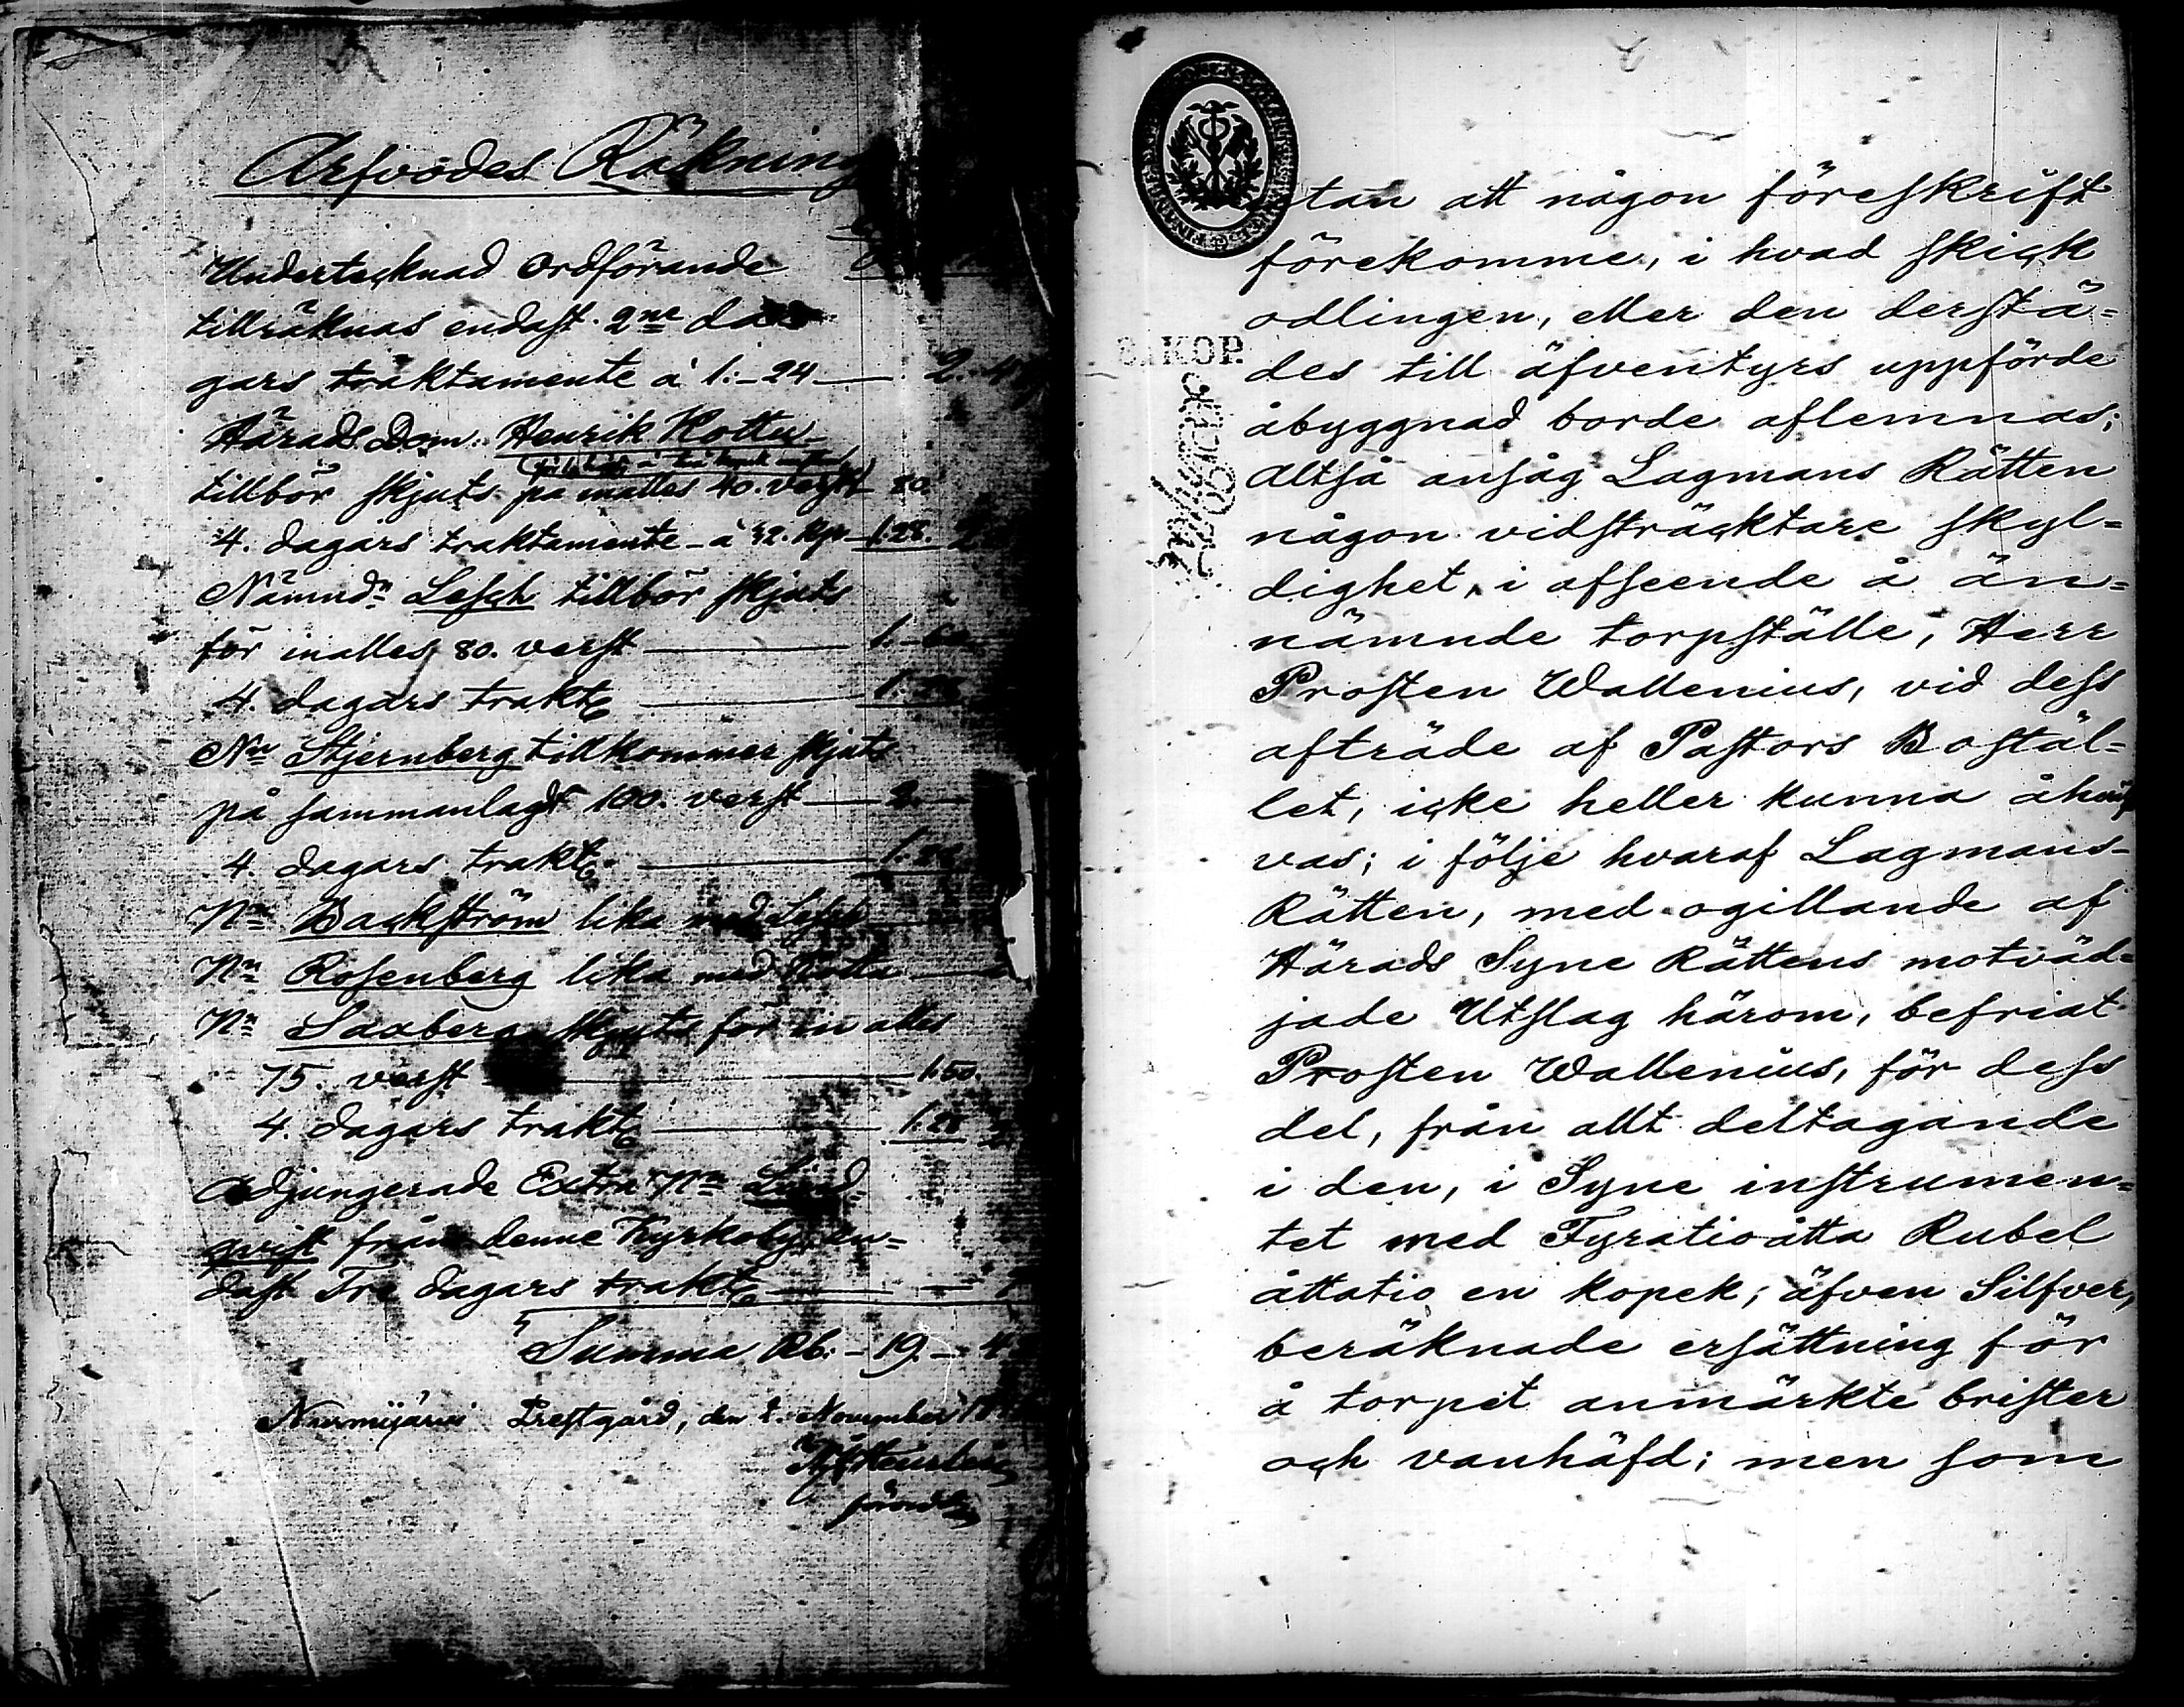 Arfvodes Räkning
Undertecknad Ordförande
tillräknas endast 2ne da
gars traktamente á 1:-24 — 2.4
Härads Dom. Henrik Kottu
tillbör skjuts på inalles 40. verst 80.
4. dagars traktamente - á 32. kp. 1.28.
Nämndn Lesch tillbör skjuts
för inalles 80. verst — 1.60
4. dagars trakte — 1.28
Nn Stjernberg tillkommer skjuts
på sammanlagdt 100. verst — 2.
4. dagars trakte — 1.28
Nn Backström lika med Lesch
Nn Rosenberg lika med Kottu
Nn Saxberg skjuts för in alles
75. verst — 1.50.
4. dagars trakte — 1.28
Adjungerade Extra Nn Lind-
qvist från denne Kyrkoby, en=
dast Tre dagars trakte
Summa Rb. - 19. - 4
Nurmijärvi Prestgård, den 2. November 18
tan att någon föreskrift
förekomme, i hvad skick
odlingen, eller den derstä=
des till äfventyrs uppförde
6. KOP.
åbyggnad borde aflemnas;
Altså ansåg Lagmans Rätten
någon vidsträcktare skyl=
dighet, i afseende å än=
nämnde torpställe, Herr
Prosten Wallenius, vid dess
afträde af Pastors Bostäl=
let, icke heller kunna åhäf
vas; i följe hvaraf Lagmans-
Rätten, med ogillande af
Härads Syne Rättens motväd=
jade Utslag härom, befriat
Prosten Wallenius, för dess
del, från allt deltagande
i den, i Syne instrumen=
tet med Fyratioåtta Rubel
åttatio en kopek; äfven Silfver,
beräknade ersättning för
å torpet anmärkte brister
och vanhäfd; men som